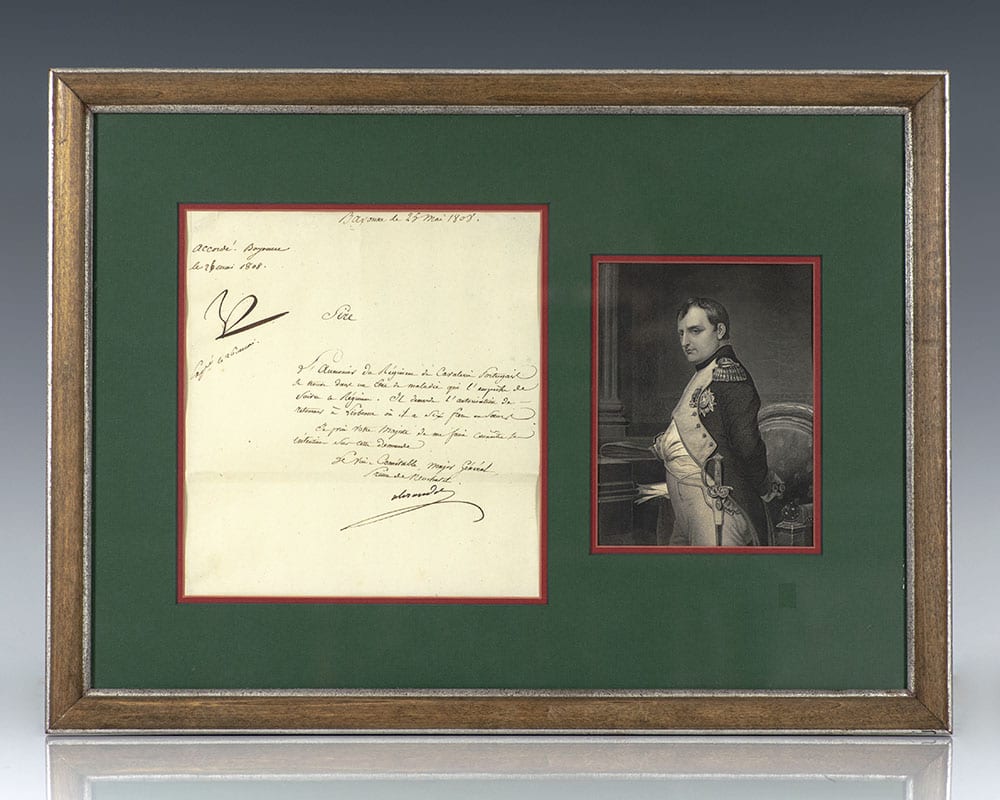 Bayonne le 25 Mai 1808.
accordé. Bayonne
le 26 mai 1808.
Sire
L'Aumonier du Régiment de Cavalerie Portugais
se trouve dans un état de maladie qui l'empêche de
suivre le Régiment. Il demande l'autorisation de
retourner à Lisbonne où il a Six frères ou Sœurs
Je prie Votre Majesté de me faire connaître ses
intentions sur cette demande
Le Vice-Connétable Major Général
Prince de Neuchatel
Alexandre